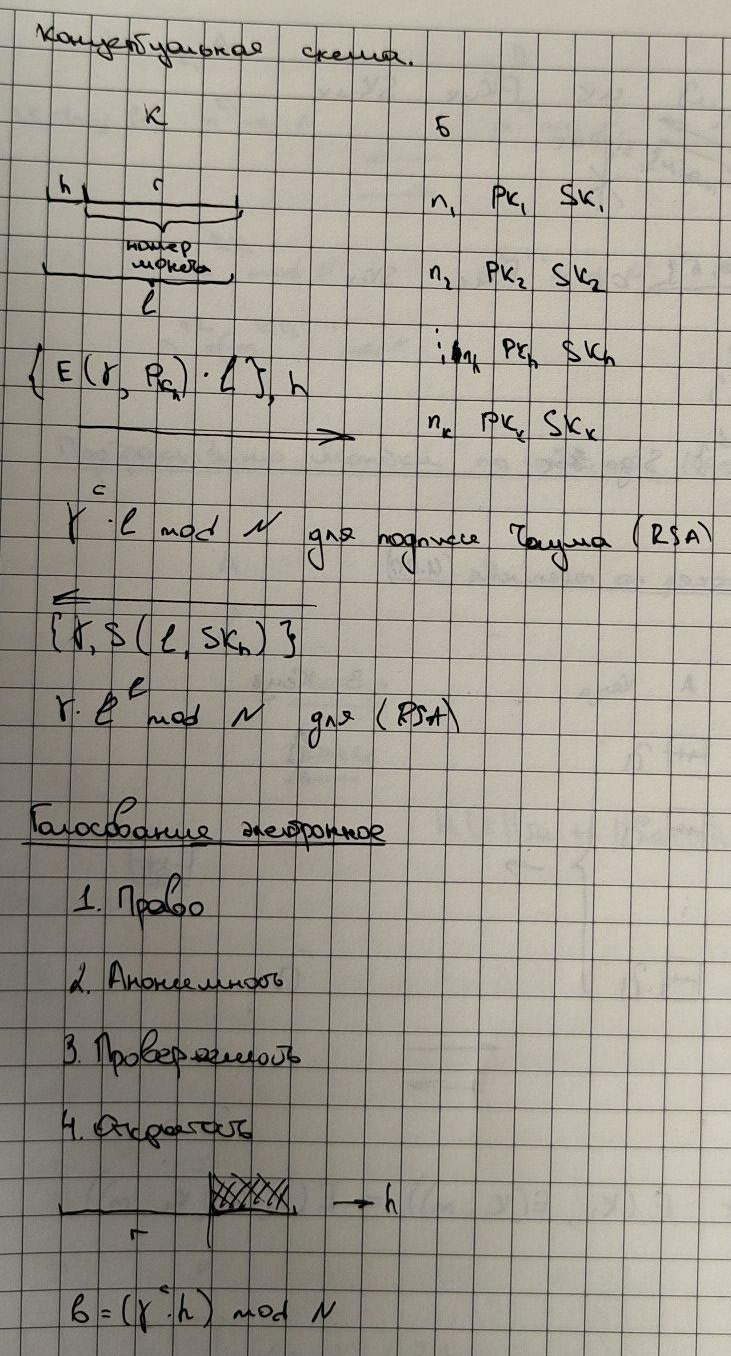 Концептуальная схема.
К Б
h r
номер
монеты
l
n₁ PK₁ SK₁
n₂ PK₂ SK₂
PKₕ SKₕ
nₖ PKₖ SKₖ
{E(γ, PKₕ) · l}, h
γᶜ · l mod N для подписи Чаума (RSA)
{γ, S(l, SKₕ)}
γ · lᵗ mod N для (RSA)
Голосование электронное
1. Право
2. Анонимность
3. Проверяемость
4. Открытость
r → h
b = (γᶜ · h) mod N